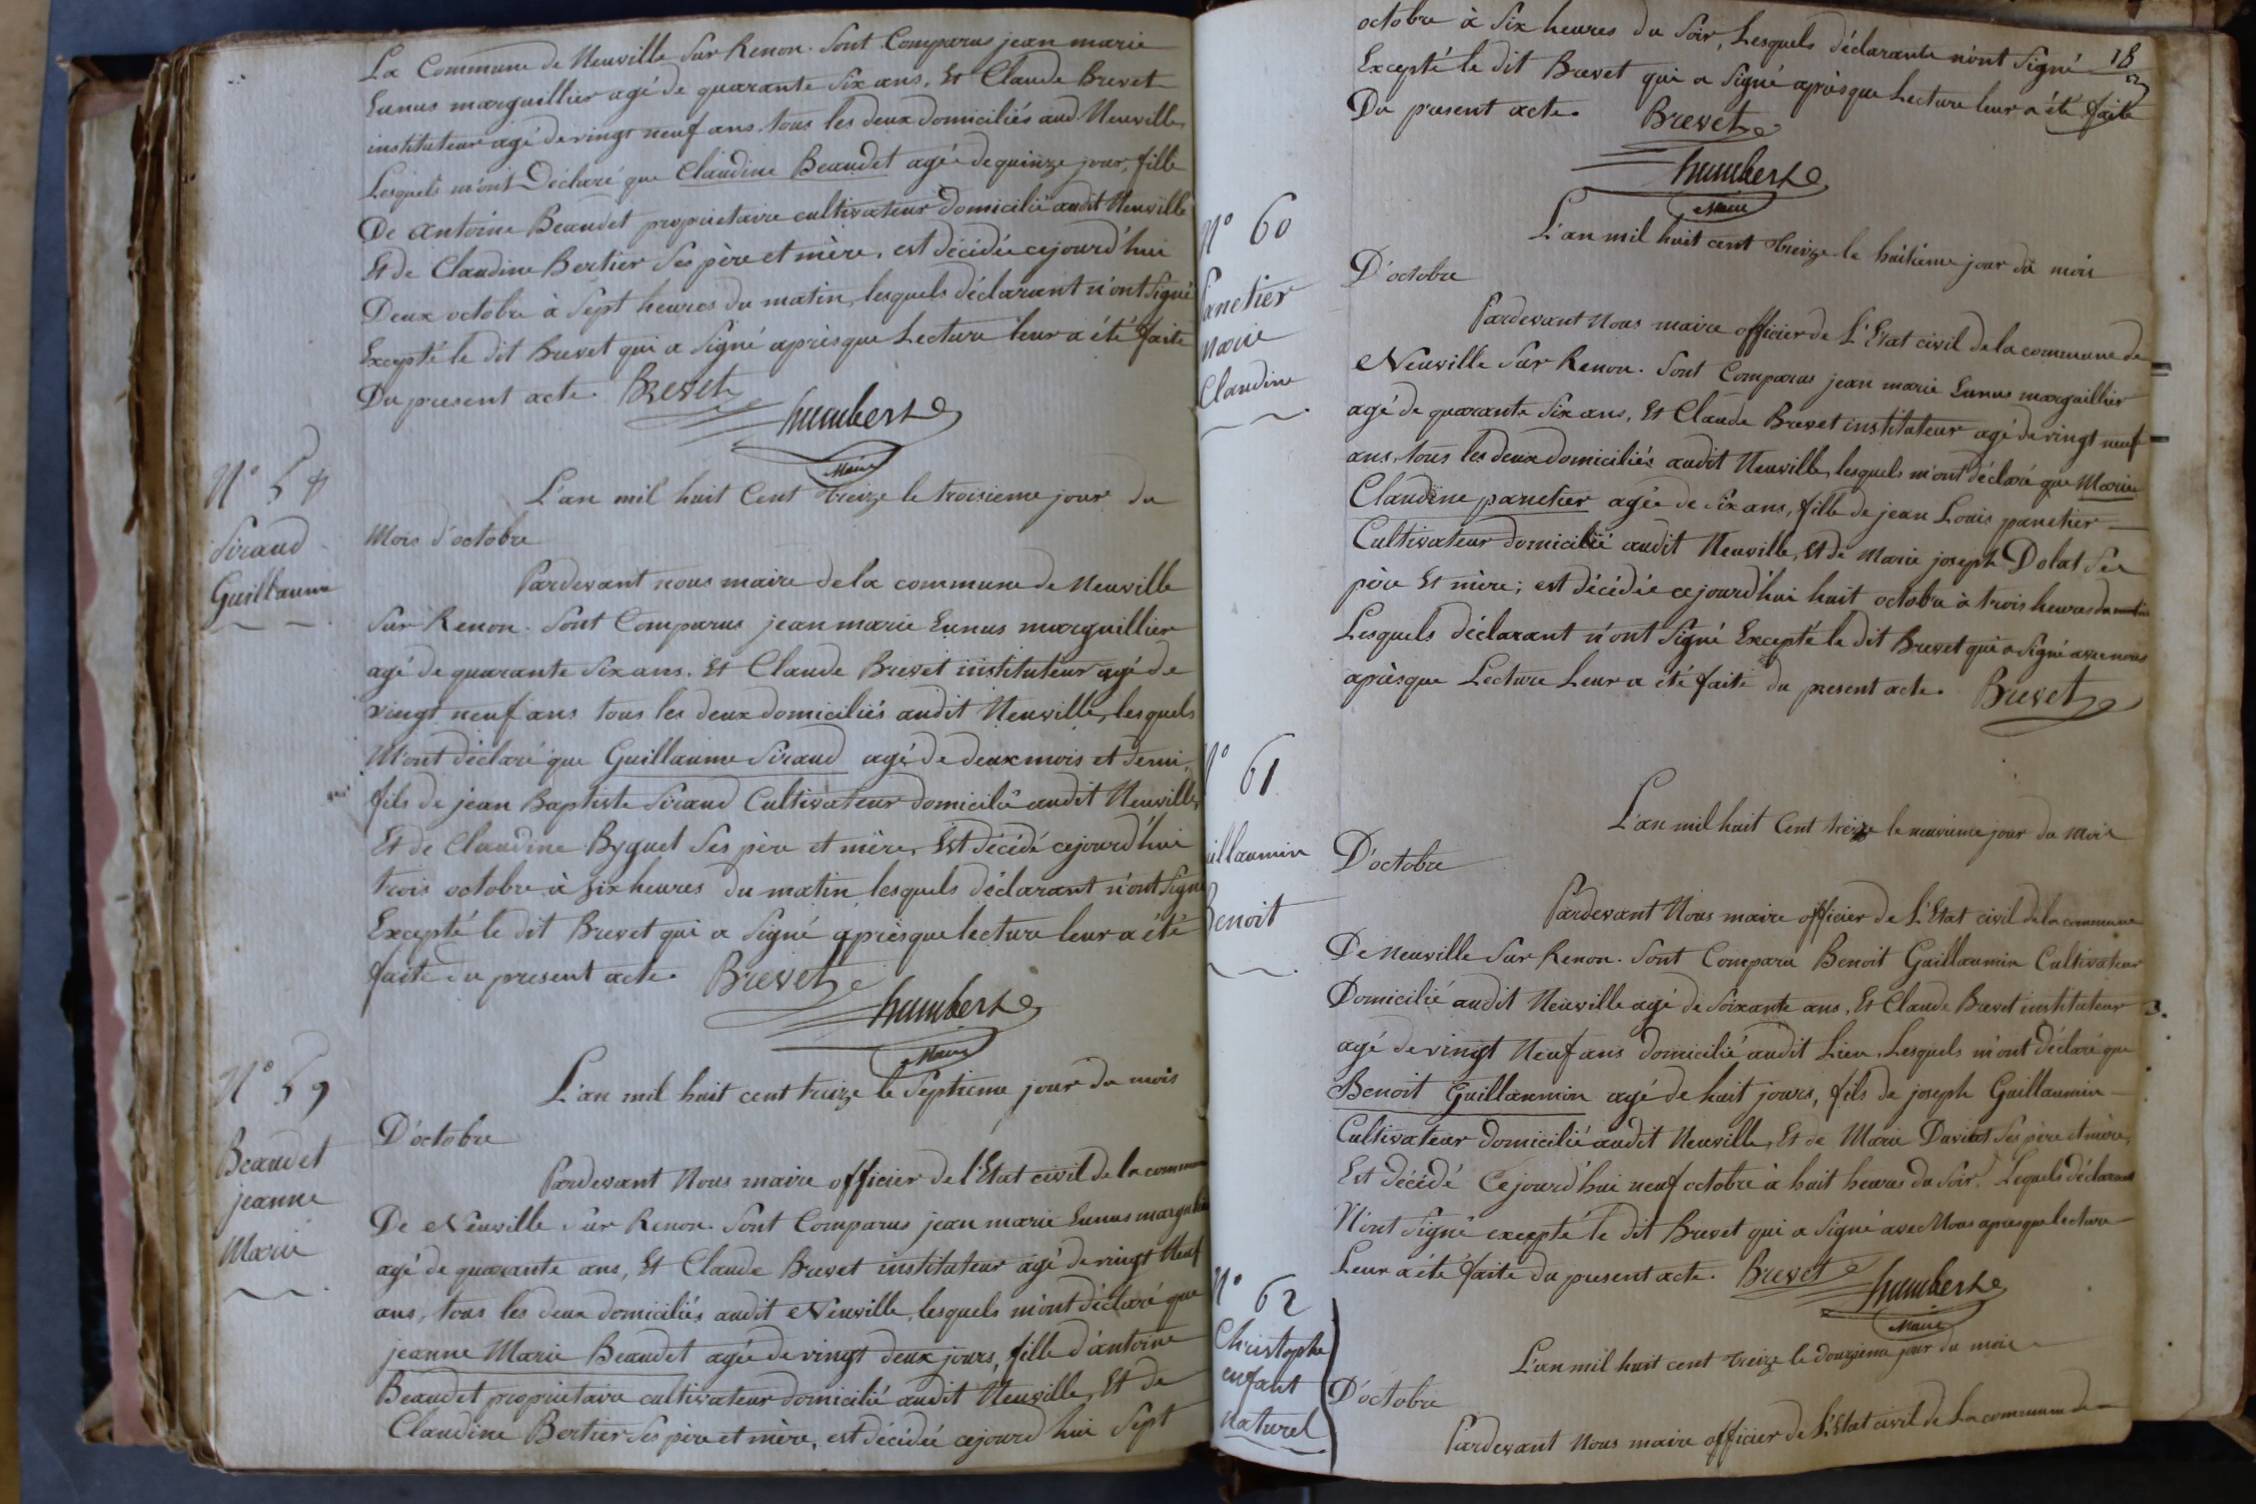 La Commune de Neuville Sur Renon. Sont Comparus jean marie
Lunus marguillier agé de quarante Six ans, Et Claude Brevet
instituteur agé de vingt neuf ans, tous les deux domiciliés aud. Neuville,
Lesquels m'ont Déclaré que Claudine Beaudet agée de quinze jour, fille
De antoine Beaudet proprietaire cultivateur domicilié audit Neuville
Et de Claudine Bertier Ses père et mère, est décédée cejourd'hui
Deux octobre à Sept heures du matin, lesquels déclarant n'ont Signé
Excepté le dit Brevet qui a Signé aprèsque Lecture leur a été faite
Du present acte. Brevet
humbert
Maire
N° 58
Siraud
Guillaume
L'an mil huit Cent treize le troisieme jour du
Mois d'octobre
Pardevant nous maire de la commune de Neuville
Sur Renon. Sont Comparus jean marie Lunus marguillier
agé de quarante Six ans. Et Claude Brevet instituteur agé de
vingt neuf ans tous les deux domiciliés audit Neuville, lesquels
M'ont déclaré que Guillaume Siraud agé de deux mois et demi,
fils de jean Baptiste Siraud Cultivateur domicilié audit Neuville,
Et de Claudine Byguet Ses père et mère, Est décédé cejourd'hui
trois octobre à six heures du matin, lesquels déclarant n'ont Signé
Excepté le dit Brevet qui a Signé aprèsque lecture leur a été
faite du present acte. Brevet
humbert
Maire
N° 59
Beaudet
jeanne
Marie
L'an mil huit cent treize le Septieme jour du mois
D'octobre
Pardevant Nous maire officier de l'Etat civil de la commune
De Neuville Sur Renon. Sont Comparus jean marie Lunus marguillier
agé de quarante ans, Et Claude Brevet instituteur agé de vingt Neuf
ans, tous les deux domiciliés audit Neuville, lesquels m'ont déclaré que
jeanne Marie Beaudet agée de vingt deux jours, fille d'antoine
Beaudet proprietaire cultivateur domicilié audit Neuville, Et de
Claudine Bertier Ses père et mère, est décédée cejourd'hui Sept
18
octobre à Six heures du Soir, Lesquels déclarants n'ont Signé
Excepté le dit Brevet qui a Signé aprèsque Lecture leur a été faite
Du present acte. Brevet
humbert
Maire
N° 60
Panetier
Marie
Claudine
L'an mil huit cent treize le huitième jour du mois
D'octobre
Pardevant Nous maire officier de L'Etat civil de la commune de
Neuville Sur Renon. Sont Comparus jean marie Lunus marguillier
agé de quarante Six ans, Et Claude Brevet instituteur agé de vingt neuf
ans, tous les deux domiciliés audit Neuville, lesquels m'ont déclaré que Marie
Claudine panetier agée de Six ans, fille de jean Louis panetier
Cultivateur domicilié audit Neuville, Et de Marie joseph Dolat Ses
père Et mère; est décédée cejourd'hui huit octobre à trois heures du matin
Lesquels déclarant n'ont Signé Excepté le dit Brevet qui a Signé avec nous
aprèsque Lecture Leur a été faite du present acte. Brevet
N° 61
uillaumin
Benoit
L'an mil huit Cent treize le neuvième jour du Mois
D'octobre
Pardevant Nous maire officier de L'Etat civil de la commune
De Neuville Sur Renon. Sont Comparu Benoit Guillaumin Cultivateur
Domicilié audit Neuville agé de Soixante ans, Et Claude Brevet instituteur
agé de vingt Neuf ans domicilié audit Lieu, Lesquels m'ont déclaré que
Benoit Guillaumin agé de huit jours, fils de joseph Guillaumin
Cultivateur domicilié audit Neuville, Et de Marie Ses père et mère,
Est décédé Cejourd'hui neuf octobre à huit heures du Soir. Lequels déclarant
N'ont Signé excepté le dit Brevet qui a Signé avec Nous apresque lecture
Leur a été faite du present acte. Brevet humbert
Maire
N° 62
Christophe
enfant
naturel
L'an mil huit cent treize le douzieme jour du mois
D'octobre
Pardevant Nous maire officier de L'Etat civil de la commune de